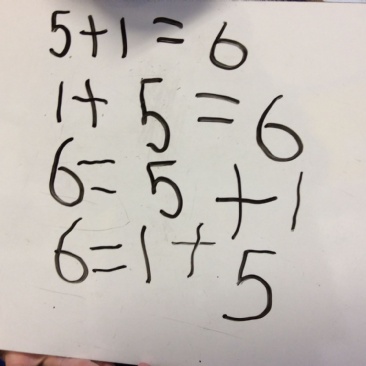 5+1=6
1+5=6
6=5+1
6=1+5